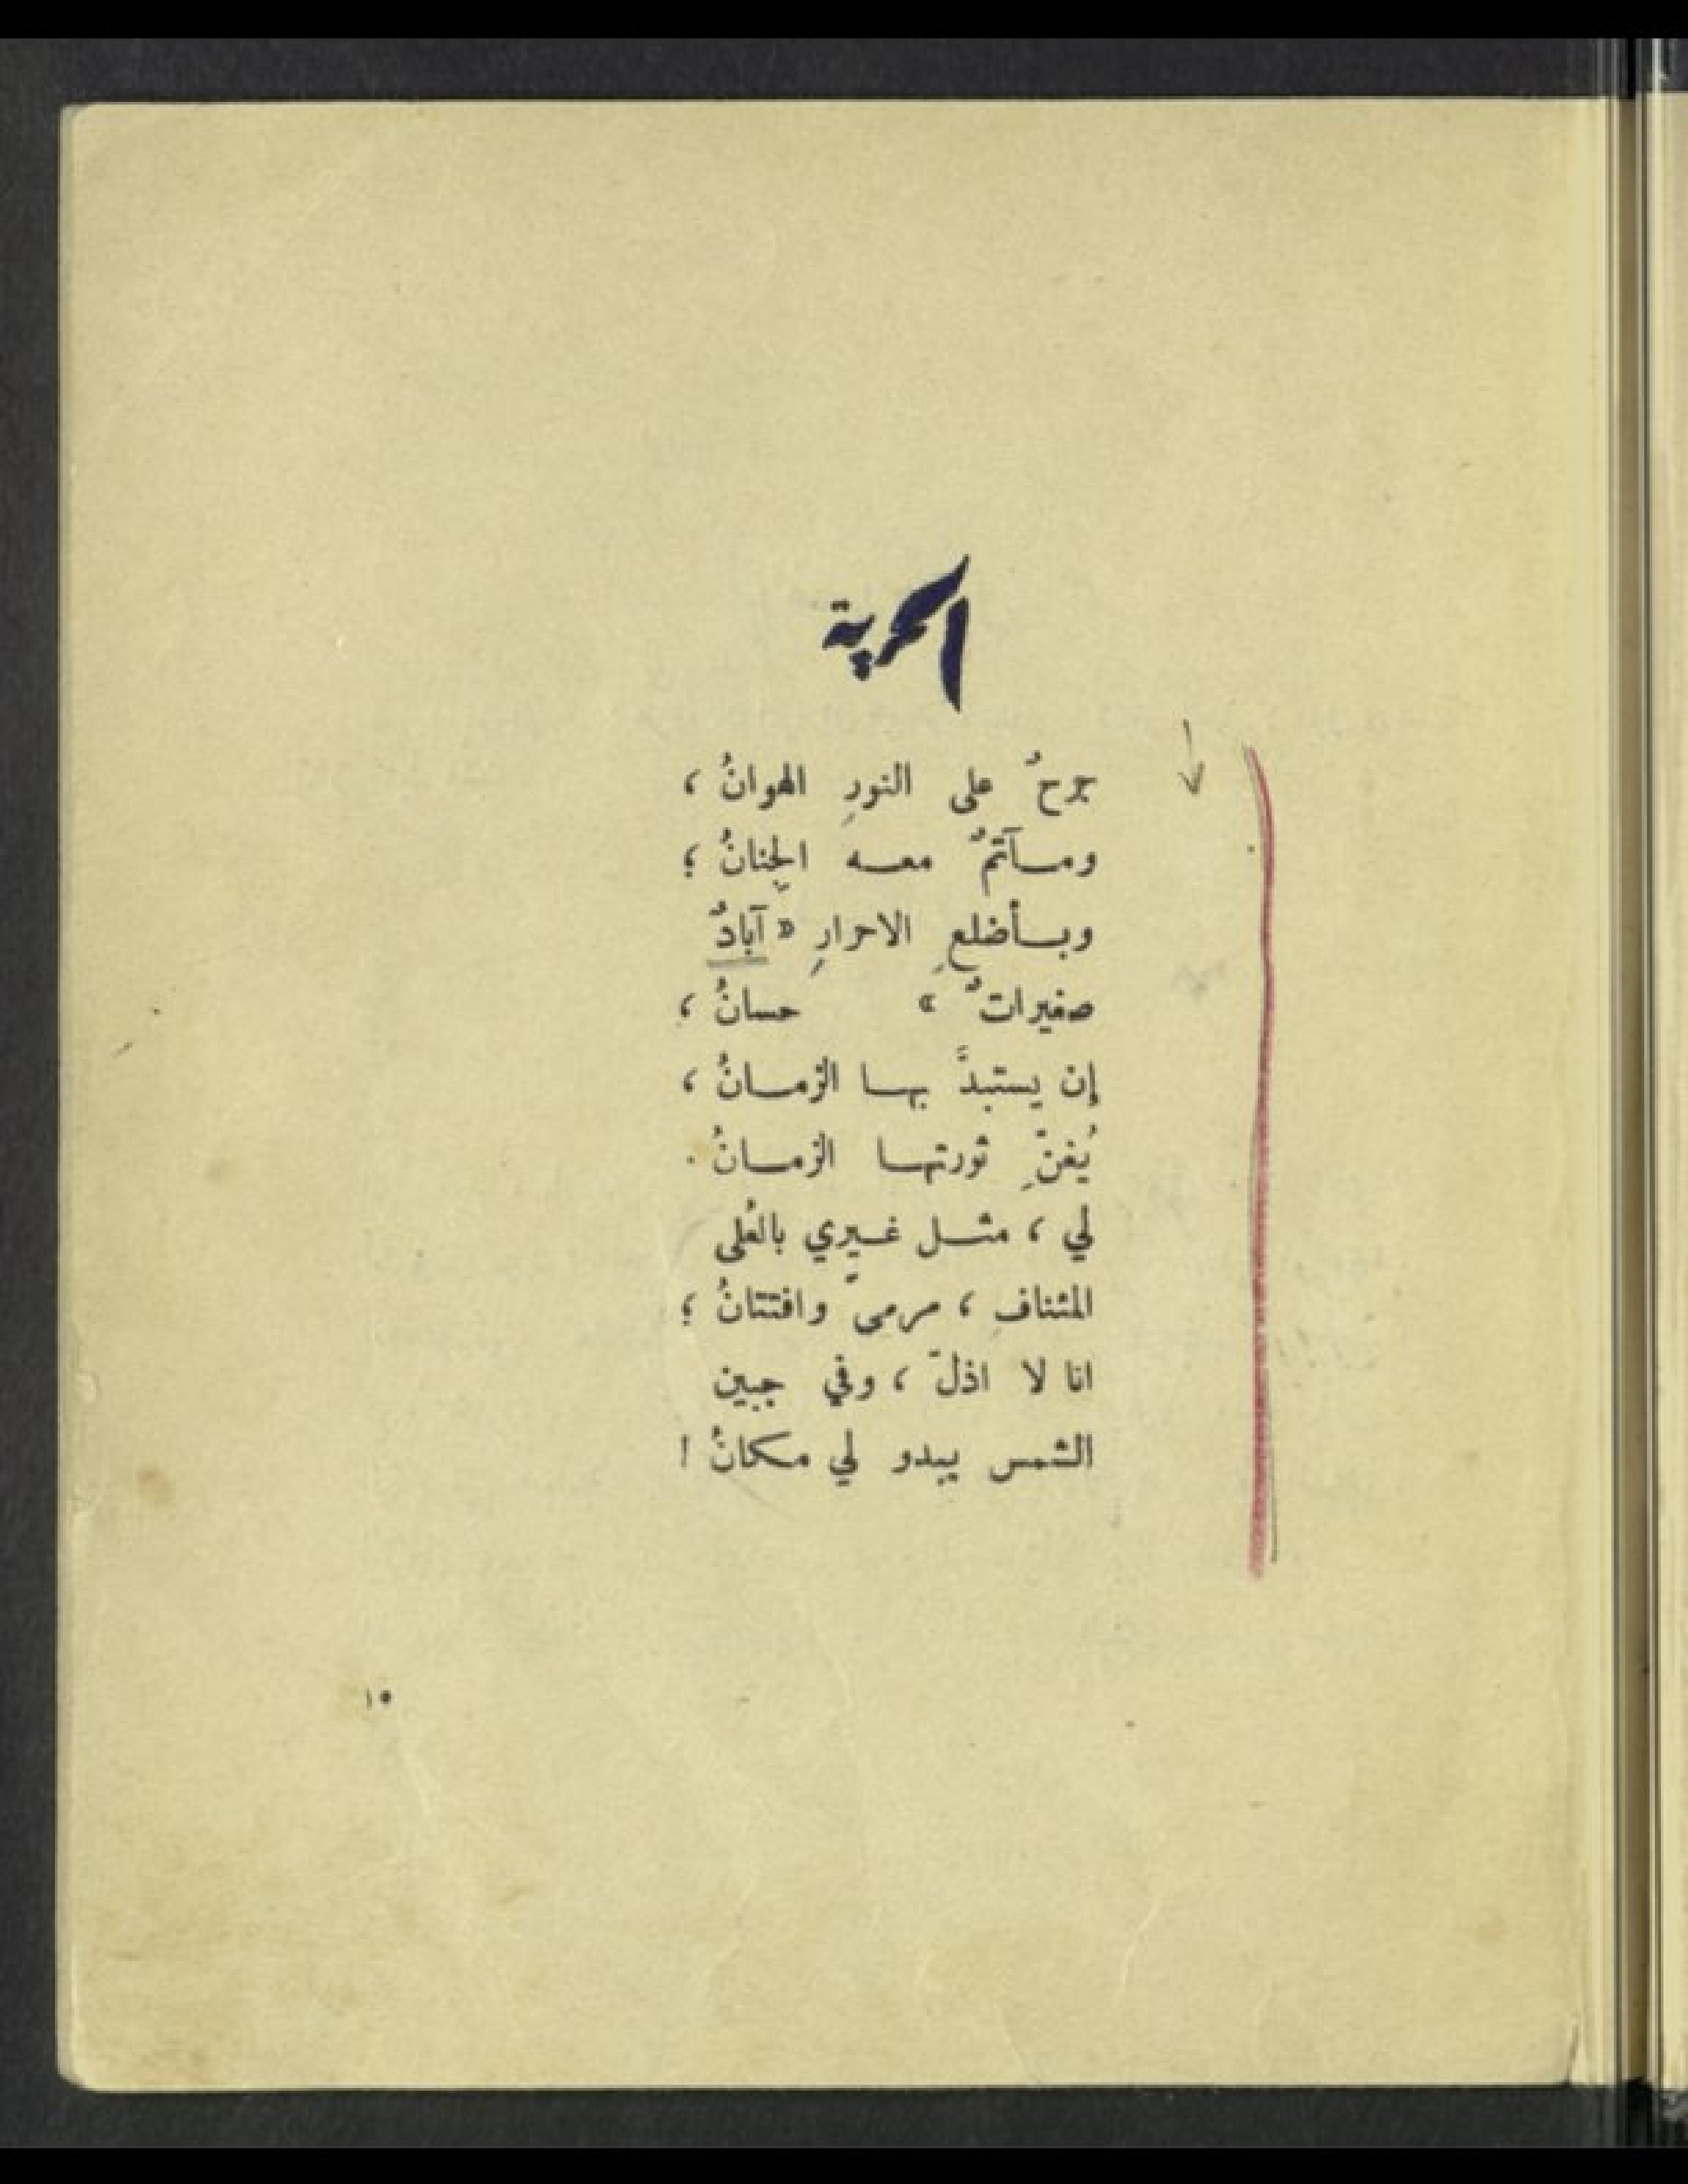 الحرية
جرحٌ على النورِ الهوانُ ،
ومــآتمٌ معــه الجِنانُ ؛
وبــأضلعِ الاحرارِ « آبادٌ
صغيراتٌ » حسانُ ،
إن يستبدَّ بهــا الزمــانُ ،
يُغنّ ثورتهــا الزمــانُ .
لي ، مثــل غــيري بالعُلى
المئناف ، مرمىً وافتتانُ ؛
انا لا اذلّ ، وفي جبين
الشمس يبدو لي مكانُ !
١٥